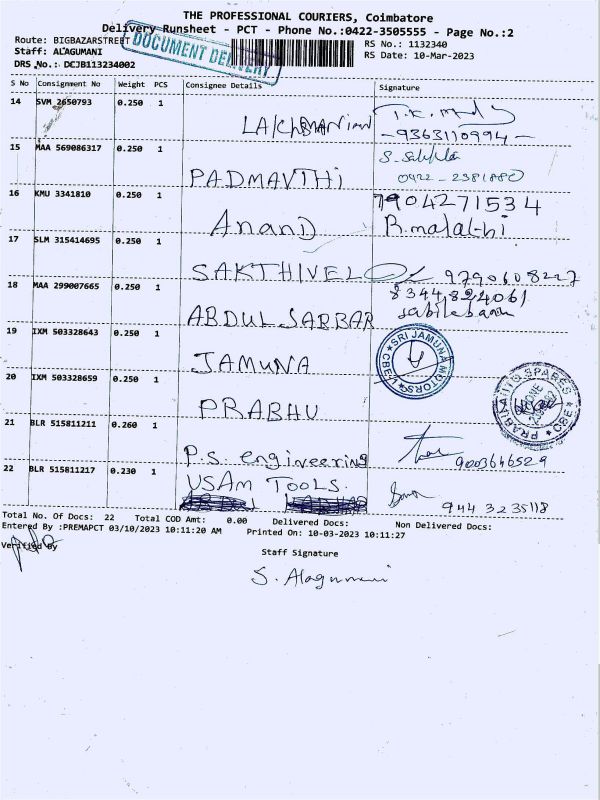 THE PROFESSIONAL COURIERS, Coimbatore
Delivery Runsheet - PCT - Phone No.:0422-3505555 - Page No.:2
Route: BIGBAZARSTREET
DOCUMENT DELIVERY
RS No.: 1132340
Staff: ALAGUMANI
RS Date: 10-Mar-2023
DRS No.: DCJB113234002
S No Consignment No Weight PCS Consignee Details Signature
14 SVM 2650793 0.250 1
-9363110994-
15 MAA 569086317 0.250 1 PADMAVTHI
0422-2381880
16 KMU 3341810 0.250 1 Anand 7904271534
R.malathi
17 SLM 315414695 0.250 1 SAKTHIVEL 9790608227
18 MAA 299007665 0.250 1 ABDUL SABBAR 8344824061
19 IXM 503328643 0.250 1 JAMUNA
SRI JAMUNA MOTORS CBE
20 IXM 503328659 0.250 1 PRABHU
PRABU AUTO SPARES CBE
21 BLR 515811211 0.260 1 P.S. engineering 9003646529
22 BLR 515811217 0.230 1 USAM TOOLS 944 3235118
Total No. Of Docs: 22 Total COD Amt: 0.00 Delivered Docs: Non Delivered Docs:
Entered By :PREMAPCT 03/10/2023 10:11:20 AM Printed On: 10-03-2023 10:11:27
Verified By
Staff Signature
S. Alagumani